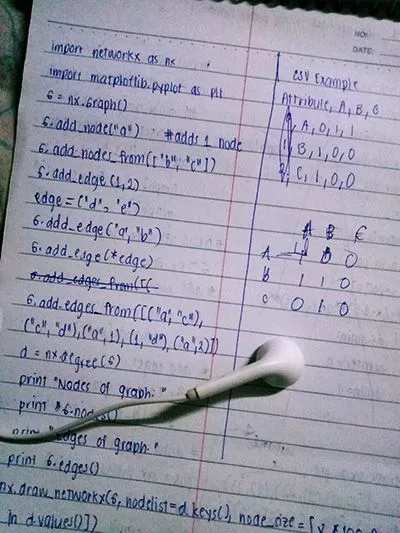 NO:
DATE:
import networkx as nx
import matplotlib.pyplot as plt
G = nx.Graph()
G.add_node("a") #adds 1 node
G.add_nodes_from(["b", "c"])
G.add_edge(1,2)
edge = ("d", "e")
G.add_edge("a", "b")
G.add_edge(*edge)
G.add_edges_from([(
G.add_edges_from([("a", "c"),
("c", "d"), ("a", 1), (1, "d"), ("a", 2)])
d = nx.degree(G)
print "Nodes of graph: "
print G.nodes()
print "Edges of graph: "
print G.edges()
nx.draw_networkx(G, nodelist=d.keys(), node_size = [v * 100
in d.values()])
CSV Example
Attribute, A, B, C
A, 0, 1, 1
B, 1, 0, 0
C, 1, 0, 0
A B C
A 1 0 0
B 1 1 0
C 0 1 0